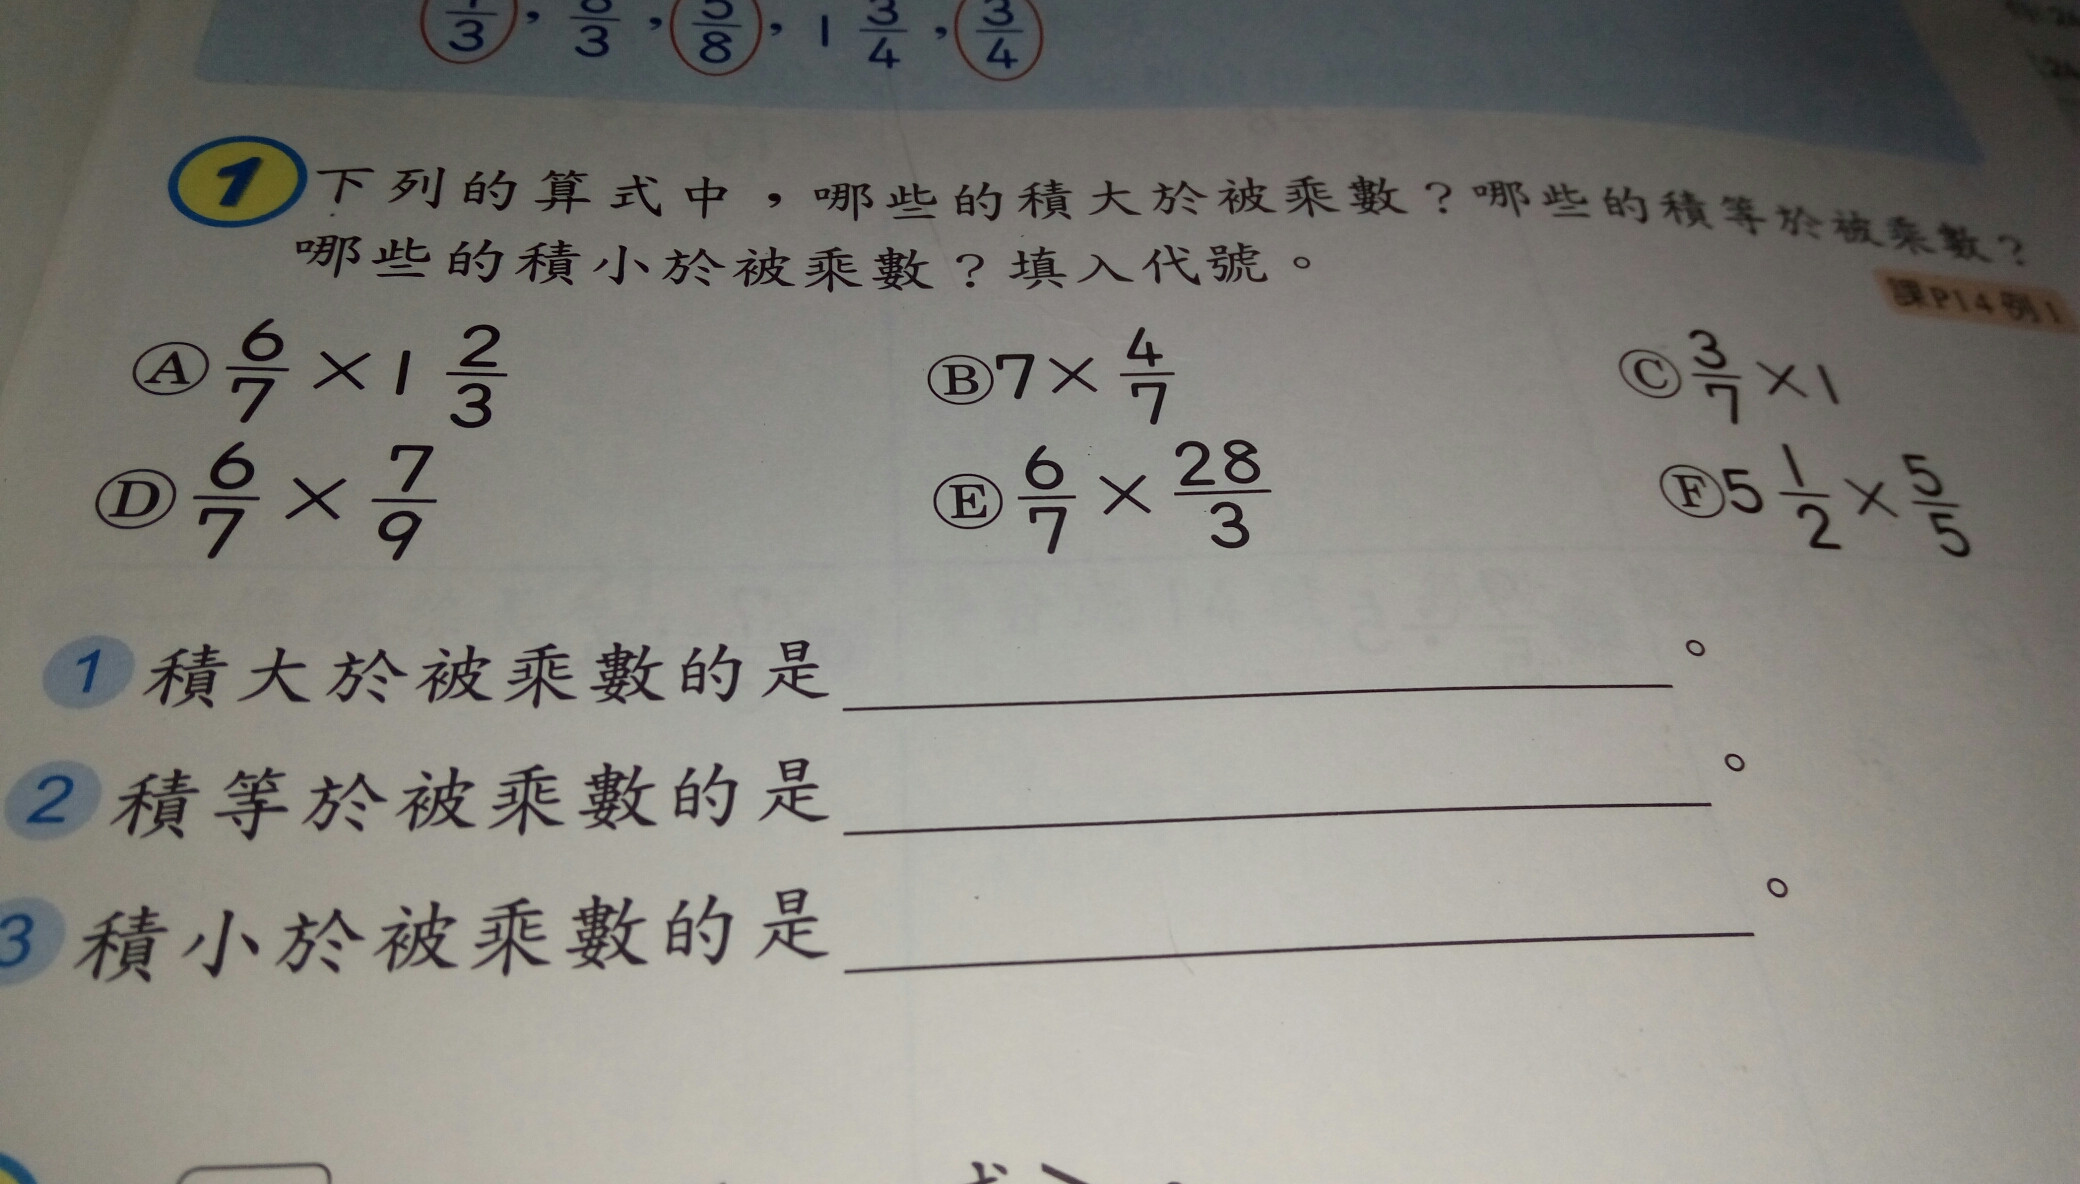 3, 3, 8, 1 3/4, 3/4
1 下列的算式中，哪些的積大於被乘數？哪些的積等於被乘數？
哪些的積小於被乘數？填入代號。
課P14例1
Ⓐ 6/7 × 1 2/3 Ⓑ 7 × 4/7 Ⓒ 3/7 × 1
Ⓓ 6/7 × 7/9 Ⓔ 6/7 × 28/3 Ⓕ 5 1/2 × 5/5
1 積大於被乘數的是 。
2 積等於被乘數的是 。
3 積小於被乘數的是 。